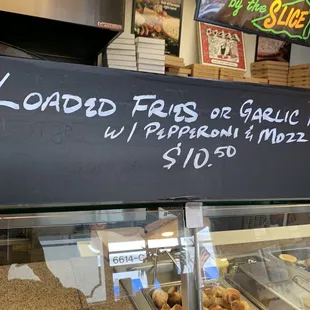 by the
SLICE
LOADED FRIES OR GARLIC
W/ PEPPERONI & MOZZ
$10.50
6614-C